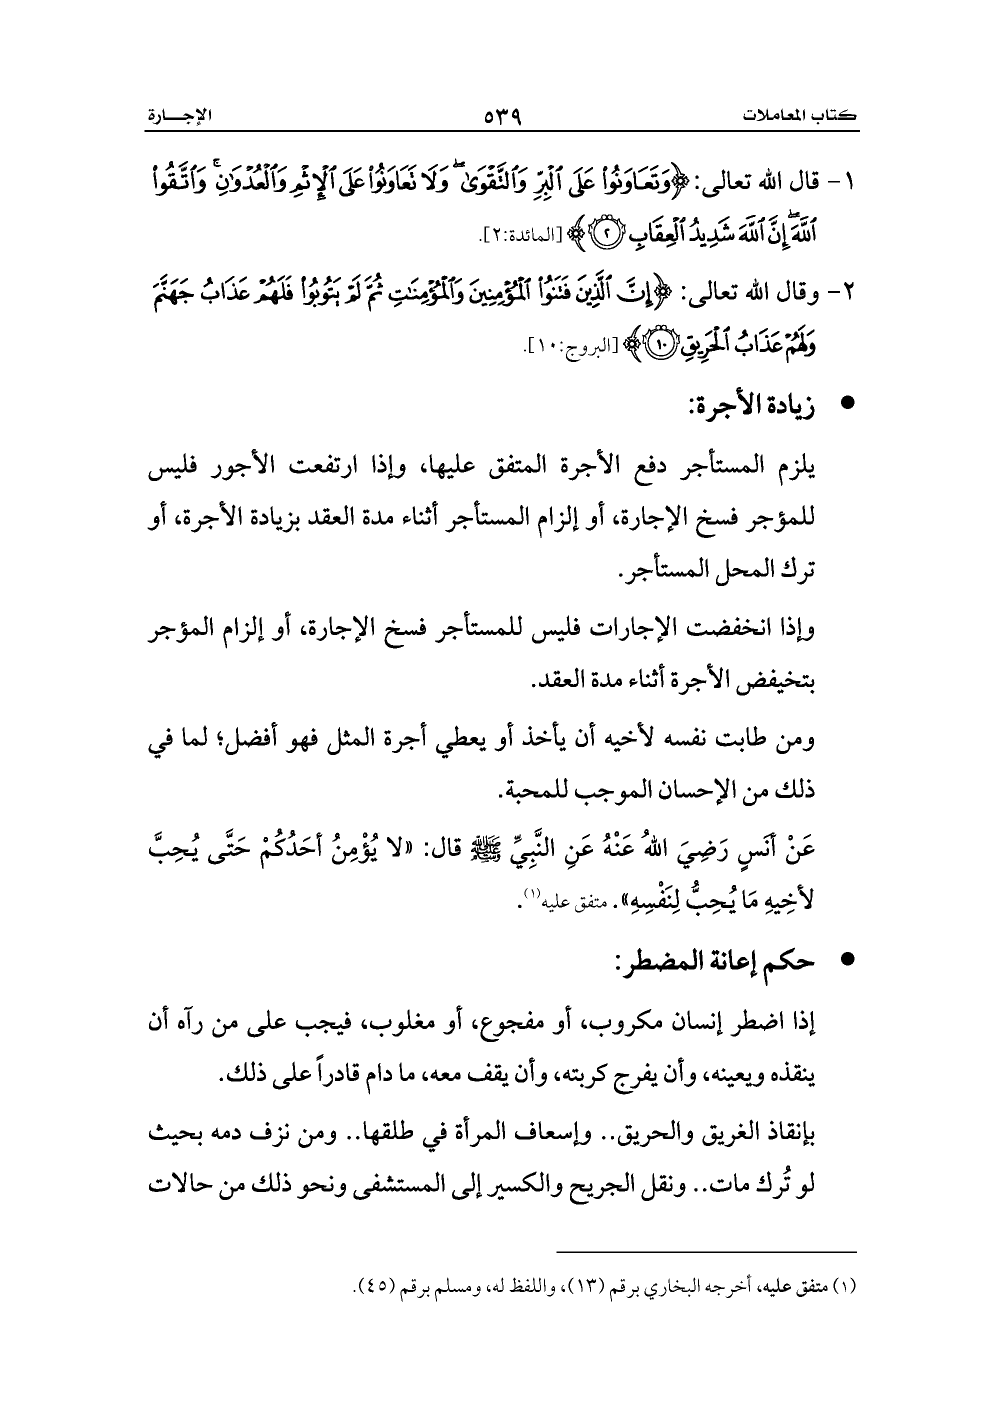 كتاب المعاملات ٥٣٩ الإجـــارة
١- قال الله تعالى: ﴿وَتَعَاوَنُوا۟ عَلَى ٱلْبِرِّ وَٱلتَّقْوَىٰ ۖ وَلَا نَعَاوَنُوا۟ عَلَى ٱلْإِثْمِ وَٱلْعُدْوَٰنِ ۚ وَٱتَّقُوا۟
ٱللَّهَ ۖ إِنَّ ٱللَّهَ شَدِيدُ ٱلْعِقَابِ ۝٢﴾ [المائدة:٢].
٢- وقال الله تعالى: ﴿إِنَّ ٱلَّذِينَ فَتَنُوا۟ ٱلْمُؤْمِنِينَ وَٱلْمُؤْمِنَـٰتِ ثُمَّ لَمْ يَتُوبُوا۟ فَلَهُمْ عَذَابُ جَهَنَّمَ
وَلَهُمْ عَذَابُ ٱلْحَرِيقِ ۝١٠﴾ [البروج:١٠].
● زيادة الأجرة:
يلزم المستأجر دفع الأجرة المتفق عليها، وإذا ارتفعت الأجور فليس
للمؤجر فسخ الإجارة، أو إلزام المستأجر أثناء مدة العقد بزيادة الأجرة، أو
ترك المحل المستأجر.
وإذا انخفضت الإجارات فليس للمستأجر فسخ الإجارة، أو إلزام المؤجر
بتخيفض الأجرة أثناء مدة العقد.
ومن طابت نفسه لأخيه أن يأخذ أو يعطي أجرة المثل فهو أفضل؛ لما في
ذلك من الإحسان الموجب للمحبة.
عَنْ أنَسٍ رَضِيَ اللهُ عَنْهُ عَنِ النَّبِيِّ ﷺ قال: «لا يُؤْمِنُ أحَدُكُمْ حَتَّى يُحِبَّ
لأخِيهِ مَا يُحِبُّ لِنَفْسِهِ». متفق عليه(١).
● حكم إعانة المضطر:
إذا اضطر إنسان مكروب، أو مفجوع، أو مغلوب، فيجب على من رآه أن
ينقذه ويعينه، وأن يفرج كربته، وأن يقف معه، ما دام قادراً على ذلك.
بإنقاذ الغريق والحريق.. وإسعاف المرأة في طلقها.. ومن نزف دمه بحيث
لو تُرك مات.. ونقل الجريح والكسير إلى المستشفى ونحو ذلك من حالات
(١) متفق عليه، أخرجه البخاري برقم (١٣)، واللفظ له، ومسلم برقم (٤٥).